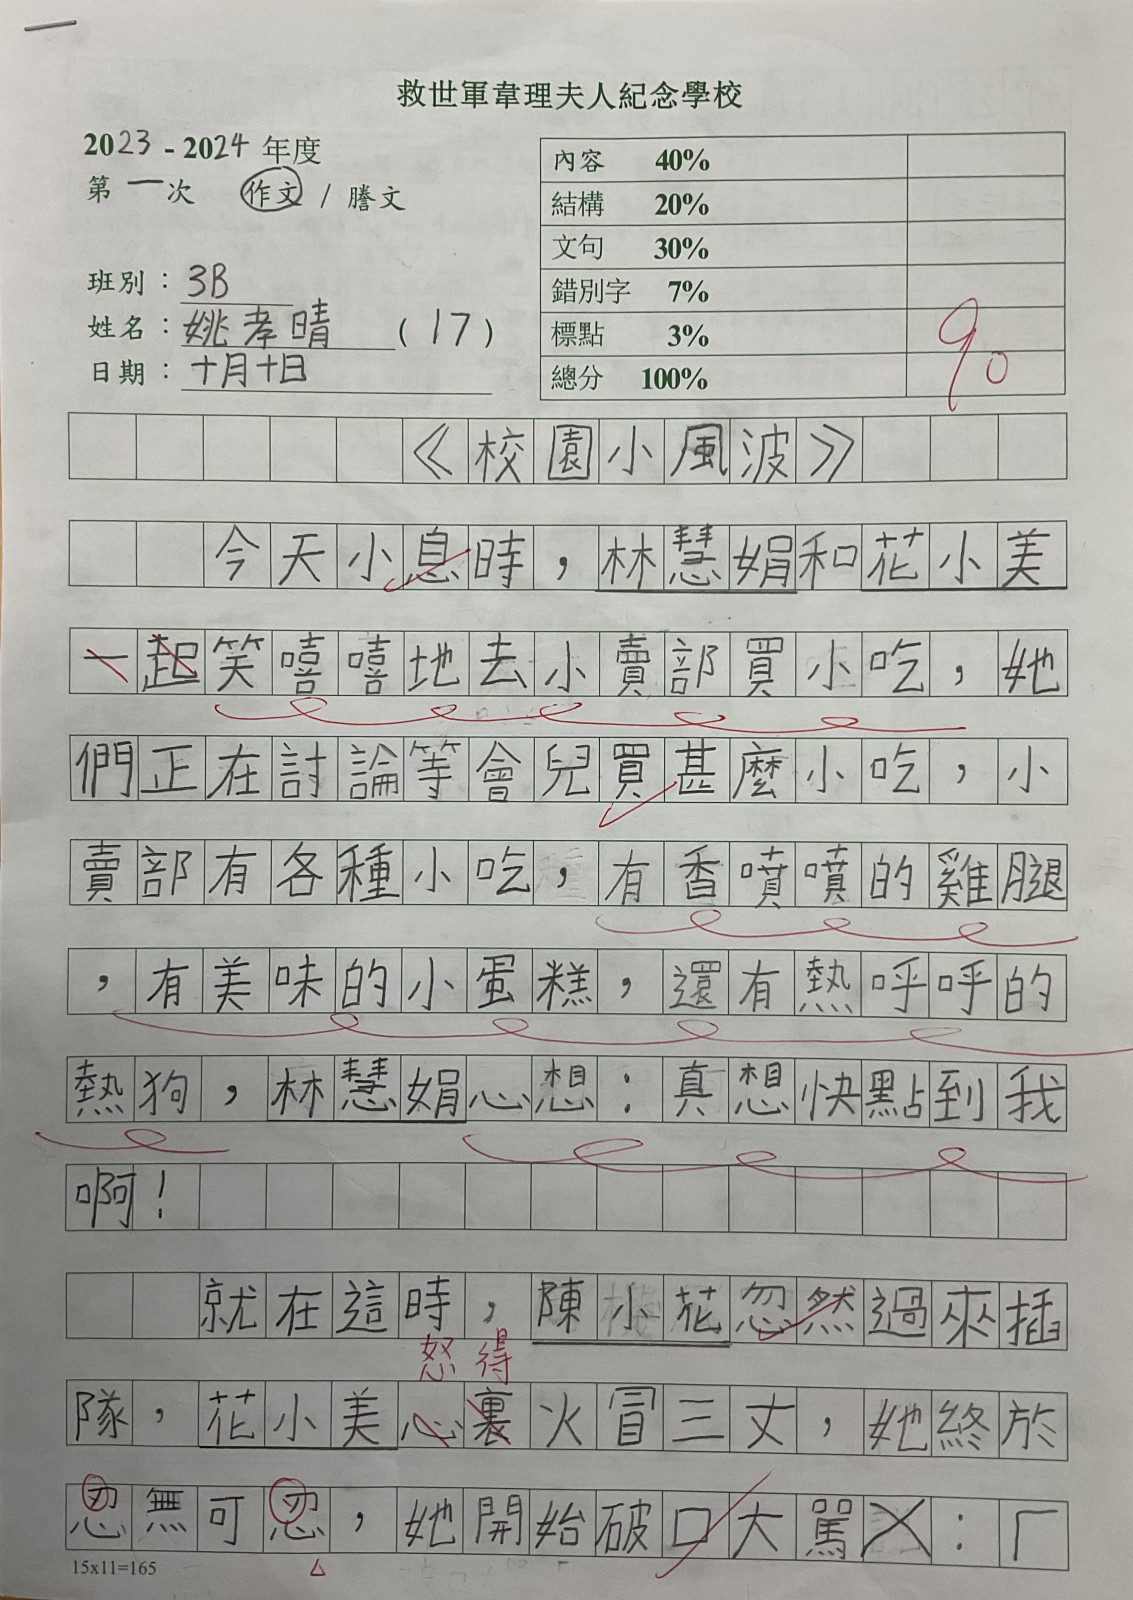 救世軍韋理夫人紀念學校
2023 - 2024 年度
第一次 作文 / 謄文
班別：3B
姓名：姚孝晴 (17)
日期：十月十日
內容 40%
結構 20%
文句 30%
錯別字 7%
標點 3%
總分 100%
90
《校園小風波》
今天小息時，林慧娟和花小美
一起笑嘻嘻地去小賣部買小吃，她
們正在討論等會兒買甚麼小吃，小
賣部有各種小吃，有香噴噴的雞腿
，有美味的小蛋糕，還有熱呼呼的
熱狗，林慧娟心想：真想快點到我
啊！
就在這時，陳小花忽然過來插
怒得
隊，花小美心裏火冒三丈，她終於
忍無可忍，她開始破口大罵：「
15x11=165